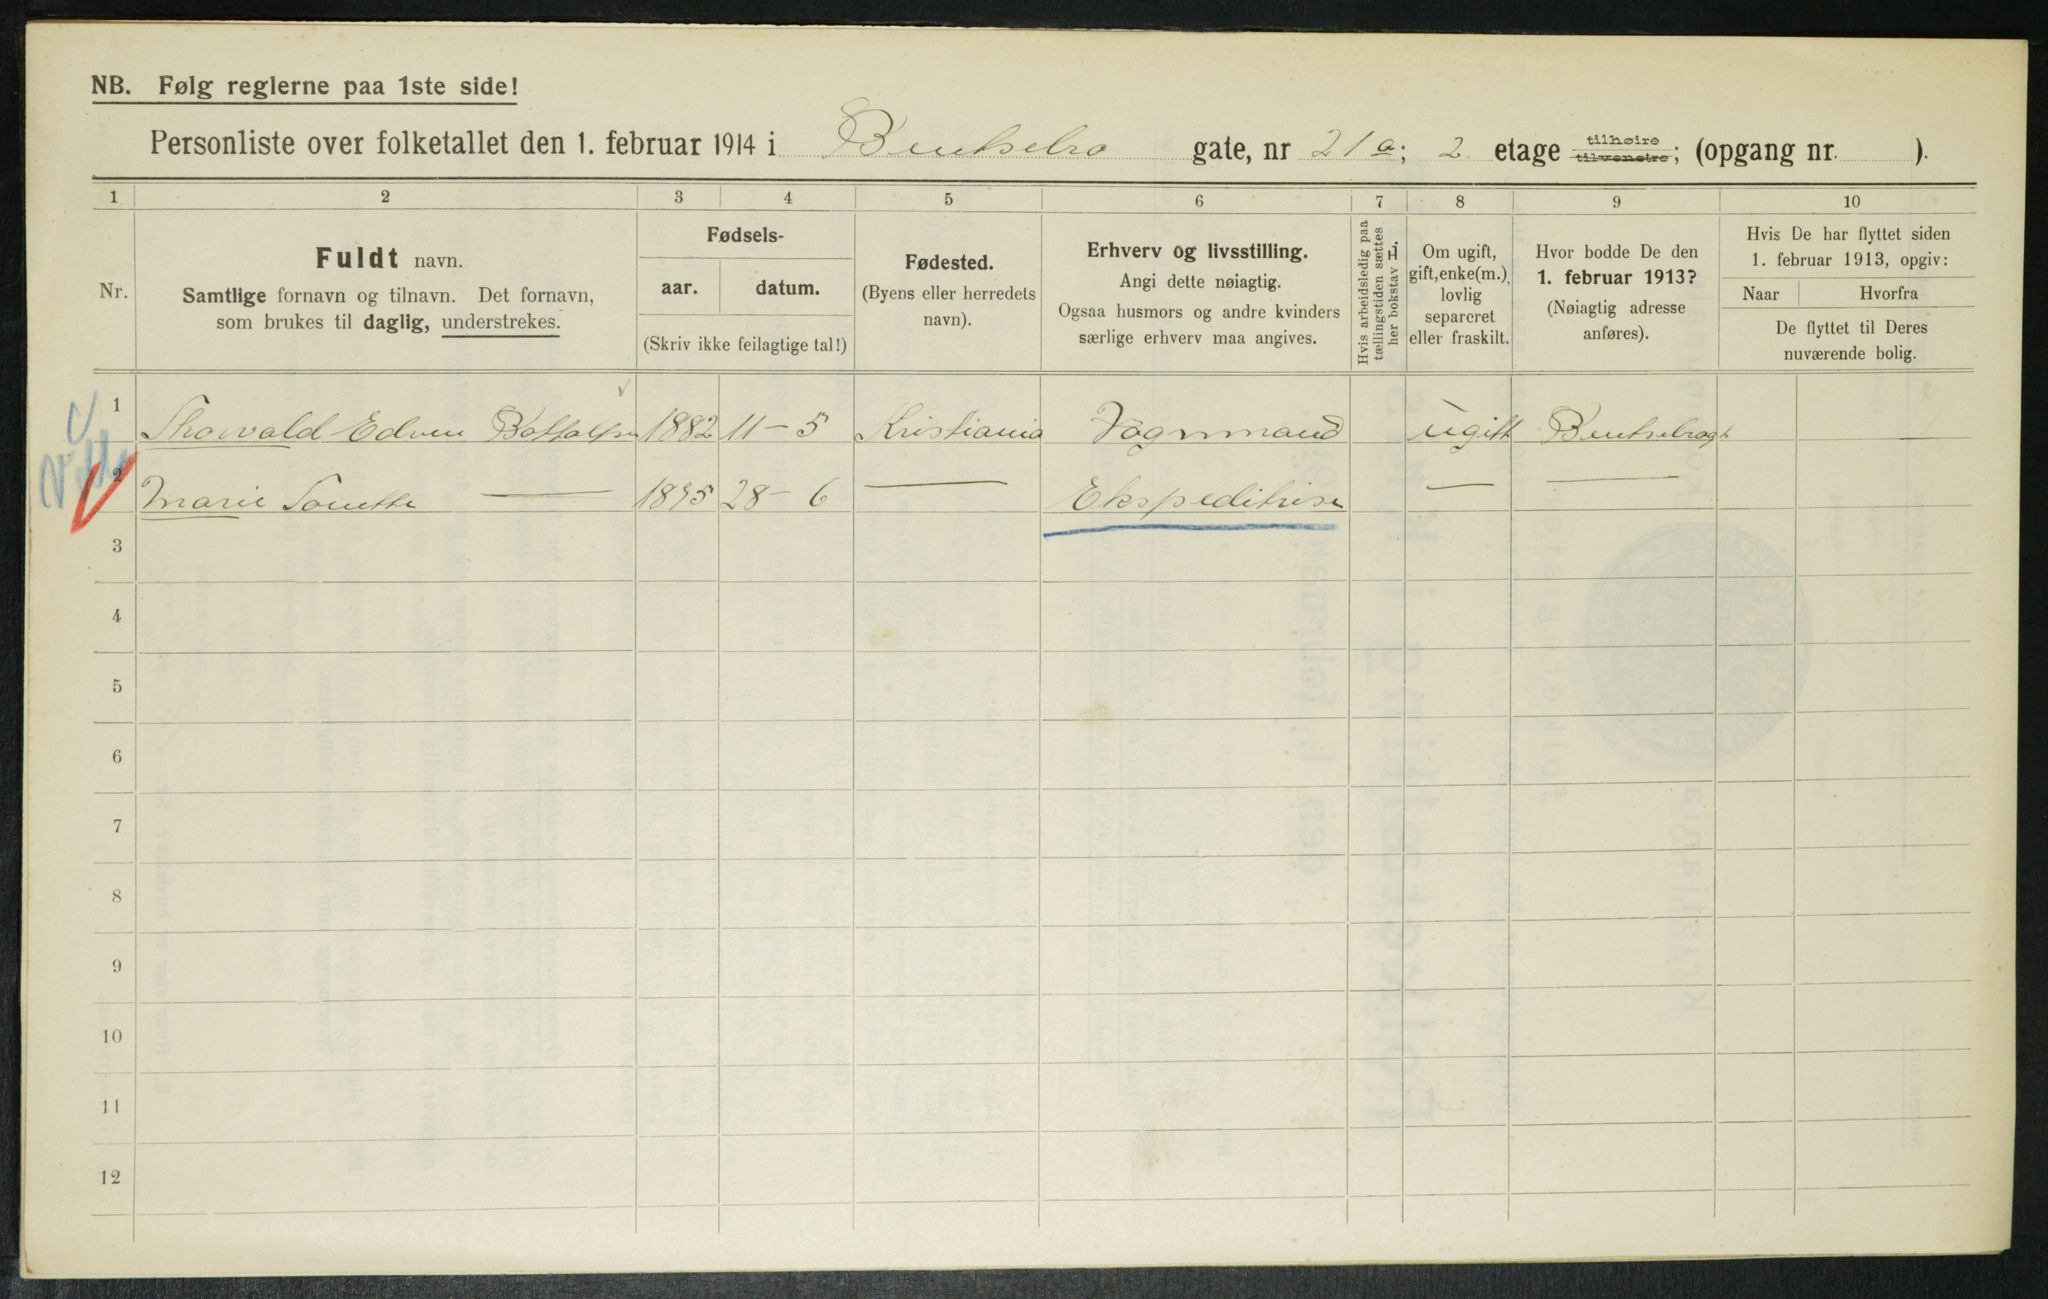 NB. Følg reglerne paa 1ste side!
Personliste over folketallet den 1. februar 1914 i Bentsebro gate, nr 21a; 2 etage tilhøire tilvenstre; (opgang nr. ).
1 2 3 4 5 6 7 8 9 10
Nr.
Fuldt navn.
Samtlige fornavn og tilnavn. Det fornavn,
som brukes til daglig, understrekes.
Fødsels-
aar. datum.
(Skriv ikke feilagtige tal!)
Fødested.
(Byens eller herredets
navn).
Erhverv og livsstilling.
Angi dette nøiagtig.
Ogsaa husmors og andre kvinders
særlige erhverv maa angives.
Hvis arbeidsledig paa
tællingstiden sættes
her bokstav L.
Om ugift,
gift, enke(m.),
lovlig
separeret
eller fraskilt.
Hvor bodde De den
1. februar 1913?
(Nøiagtig adresse
anføres).
Hvis De har flyttet siden
1. februar 1913, opgiv:
Naar Hvorfra
De flyttet til Deres
nuværende bolig.
1 Thorvald Edvin Botholfsen 1882 11-5 Kristiania Vognmand ugift Bentsebrogt
2 Marie 1895 28-6 — Ekspeditrise — —
3
4
5
6
7
8
9
10
11
12